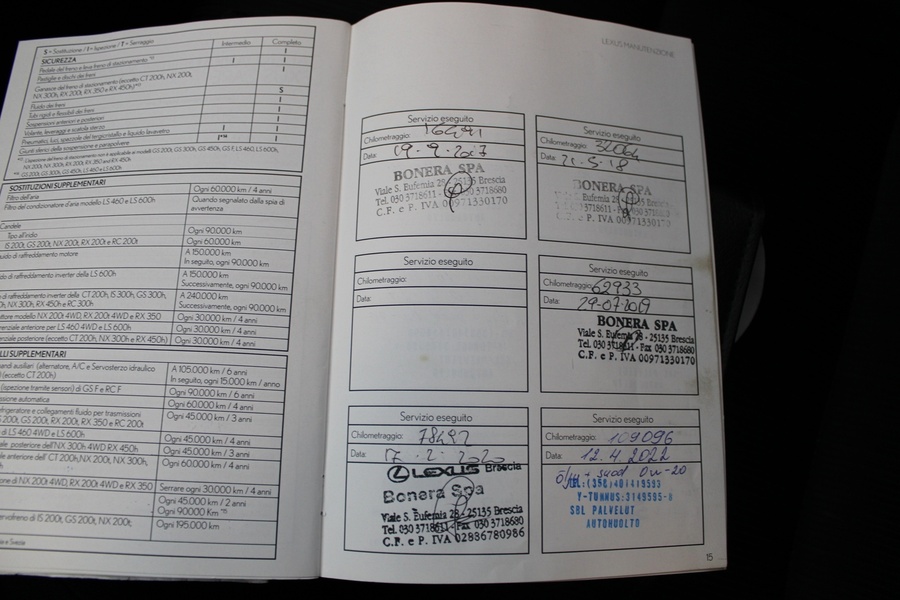 S = Sostituzione / I = Ispezione / T = Serraggio
Intermedio Completo
SICUREZZA I
Pedale del freno e leva freno di stazionamento *1) I I
Pastiglie e dischi dei freni I
Ganasce del freno di stazionamento (eccetto CT 200h, NX 200t,
NX 300h, RX 200t, RX 350 e RX 450h) *2)
Fluido dei freni S
Tubi rigidi e flessibili dei freni I
Sospensioni anteriori e posteriori I
Volante, leveraggi e scatola sterzo I I
Pneumatici, luci, spazzole del tergicristallo e liquido lavavetro I
Giunti sferici della sospensione e parapolvere I
NX 200t, NX 300h, RX 200t, RX 350 and RX 450h
GS 200t, GS 300h, GS 450h, LS 460 e LS 600h
SOSTITUZIONI SUPPLEMENTARI
Filtro dell'aria Ogni 60.000 km / 4 anni
Filtro del condizionatore d'aria modello LS 460 e LS 600h Quando segnalato dalla spia di
avvertenza
Candele
Tipo all'iridio Ogni 90.000 km
IS 200t, GS 200t, NX 200t, RX 200t e RC 200t Ogni 60.000 km
uido di raffreddamento motore A 150.000 km
In seguito, ogni 90.000 km
do di raffreddamento inverter della LS 600h A 150.000 km
Successivamente, ogni 90.000 km
di raffreddamento inverter della CT 200h, IS 300h, GS 300h,
h, NX 300h, RX 450h e RC 300h A 240.000 km
Successivamente, ogni 90.000 km
modello NX 200t 4WD, RX 200t 4WD e RX 350 Ogni 30.000 km / 4 anni
renziale anteriore per LS 460 4WD e LS 600h Ogni 30.000 km / 4 anni
enziale posteriore (eccetto CT 200h, NX 300h e RX 450h) Ogni 30.000 km / 4 anni
LLI SUPPLEMENTARI
andi ausiliari (alternatore, A/C e Servosterzo idraulico
(eccetto CT 200h) A 105.000 km / 6 anni
In seguito, ogni 15.000 km / anno
(ispezione tramite sensori) di GS F e RC F Ogni 90.000 km / 6 anni
ssione automatica Ogni 60.000 km / 4 anni
efrigeratore e collegamenti fluido per trasmissioni
S 200t, GS 200t, RX 200t, RX 350 e RC 200t Ogni 45.000 km / 3 anni
di LS 460 4WD e LS 600h Ogni 45.000 km / 4 anni
posteriore dell'NX 300h 4WD RX 450h Ogni 45.000 km / 3 anni
ale anteriore dell' CT 200h, NX 200t, NX 300h, Ogni 60.000 km / 4 anni
one di NX 200t 4WD, RX 200t 4WD e RX 350 Serrare ogni 30.000 km / 4 anni
Ogni 45.000 km / 2 anni
Ogni 90000 Km
servofreno di IS 200t, GS 200t, NX 200t, Ogni 195.000 km
LEXUS MANUTENZIONE
Servizio eseguito
Chilometraggio:
Data: 19.9.2017
BONERA SPA
Viale S. Eufemia 28 - 25135 Brescia
Tel. 030 3718611 - Fax 030 3718680
C.F. e P. IVA 00971330170
Servizio eseguito
Chilometraggio:
Data: 21.5.18
BONERA SPA
Viale S. Eufemia 28 - 25135 Brescia
Tel. 030 3718611 - Fax 030
C.F. e P. IVA 00971330170
Servizio eseguito
Chilometraggio:
Data:
Servizio eseguito
Chilometraggio: 62933
Data: 29-07-2019
BONERA SPA
Viale S. Eufemia 28 - 25135 Brescia
Tel. 030 3718611 - Fax 030 3718680
C.F. e P. IVA 00971330170
Servizio eseguito
Chilometraggio: 78492
Data: 17.2.2020
LEXUS Brescia
Bonera Spa
Viale S. Eufemia 28 - 25135 Brescia
Tel. 030 3718611 - Fax 030 3718680
C.F. e P. IVA 02836780986
Servizio eseguito
Chilometraggio: 109096
Data: 12.4.2022
öljy + suod 0w-20
Y-TUNNUS:
SBL PALVELUT
AUTOHUOLTO
15